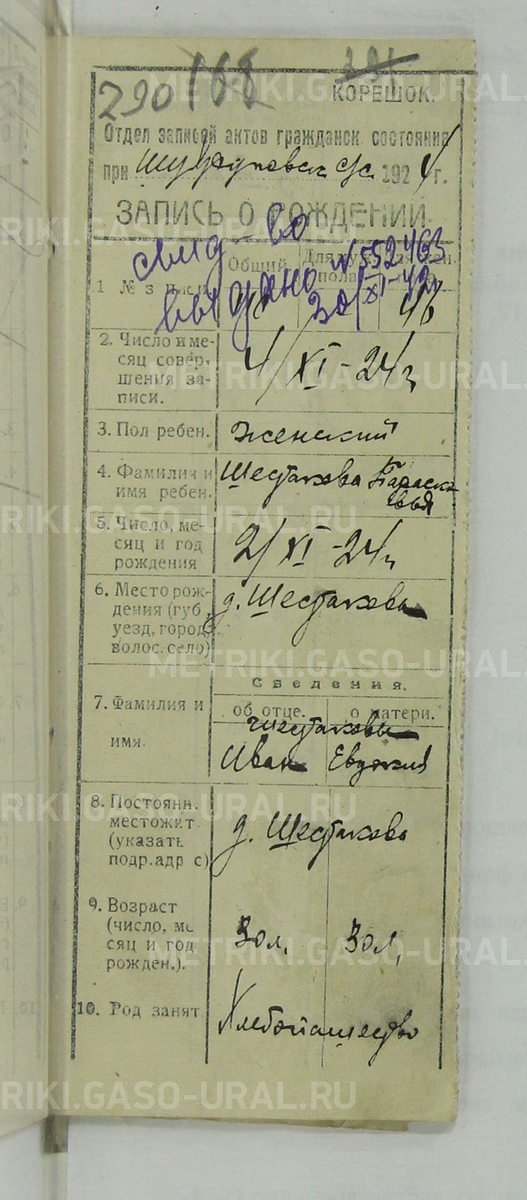 290 188 291
КОРЕШОК.
Отдел записей актов гражданск. состояния
при с/с. 1924 г.
ЗАПИСЬ О РОЖДЕНИИ.
свид-во
выдано N 552463
30/XI-42
1 № записи
Общий
46
2. Число и месяц совершения записи.
4/XI-24 г
3. Пол ребен.
женский
4. Фамилия и
имя ребен.
Шестакова Параско
вья
5. Число, ме-
сяц и год
рождения
2/XI-24 г
6. Место рож-
дения (губ.,
уезд, город,
волос. село)
д. Шестакова
Сведения.
7. Фамилия и
имя.
об отце. о матери.
Шестаковы
Иван Евдокия
8. Постоянн.
местожит.
(указать
подр. адр с)
д. Шестакова
9. Возраст
(число, ме
сяц и год
рожден.).
30 л. 30 л.
10. Род занят.
Хлебопашество
METRIKI.GASO-URAL.RU